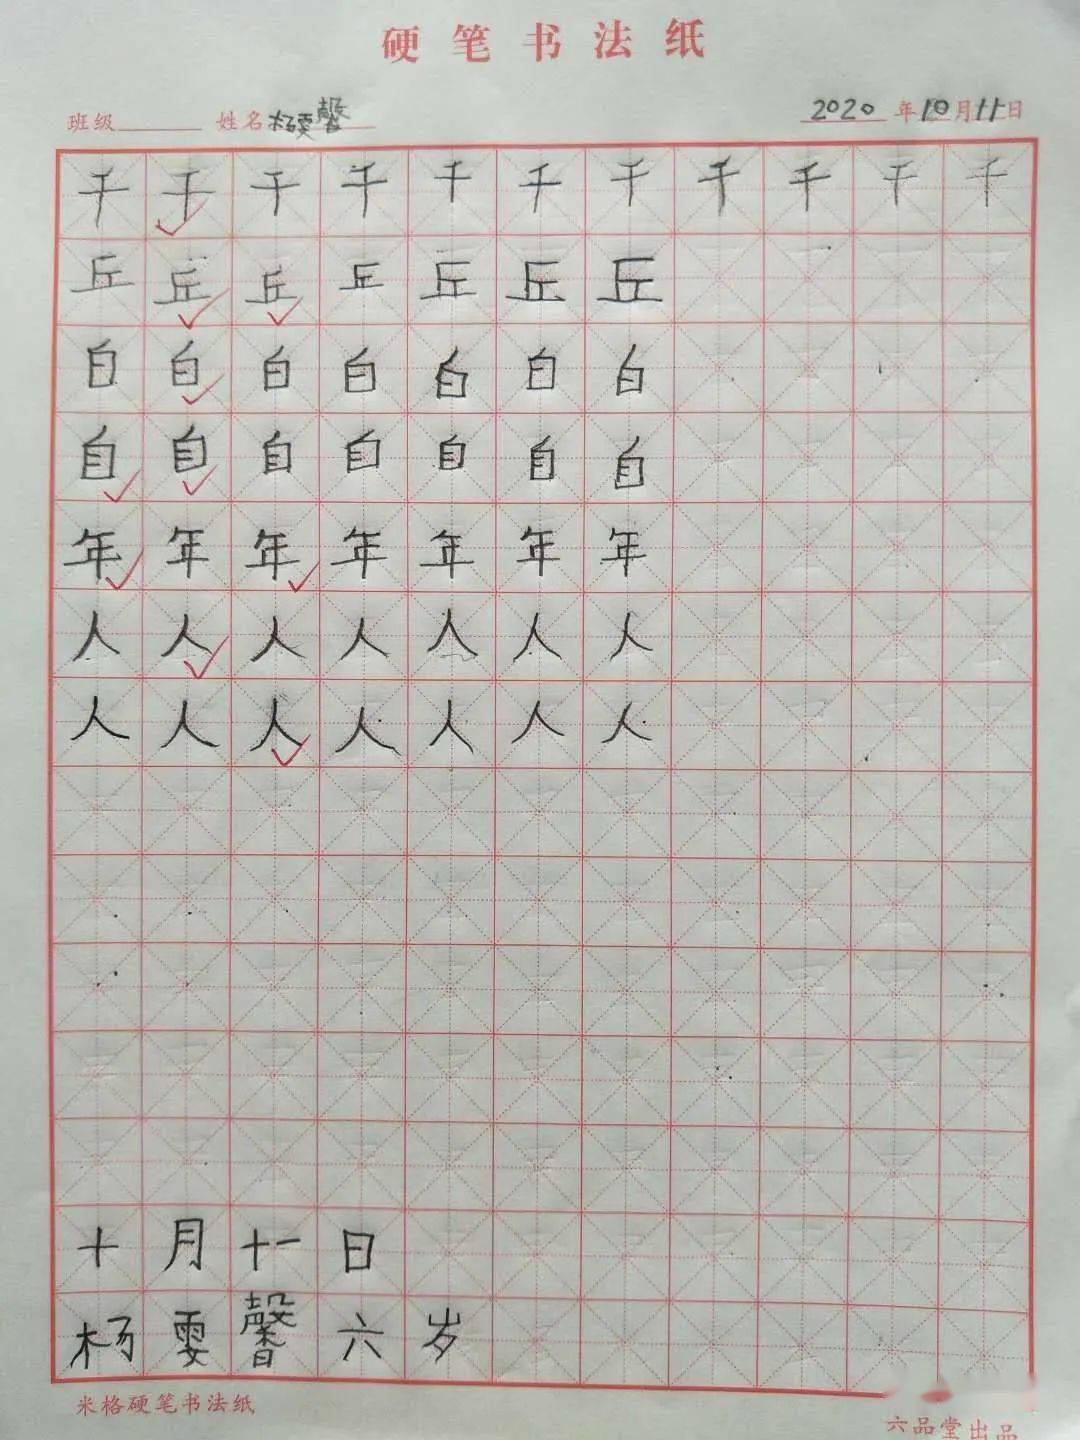 硬笔书法纸
班级 姓名 杨雯馨 2020 年 10 月 11 日
千 千 千 千 千 千 千 千 千 千 千
丘 丘 丘 丘 丘 丘 丘
白 白 白 白 白 白 白
自 自 自 自 自 自 自
年 年 年 年 年 年 年
人 人 人 人 人 人 人
人 人 人 人 人 人 人
十 月 十一 日
杨 雯 馨 六 岁
米格硬笔书法纸
六品堂出品